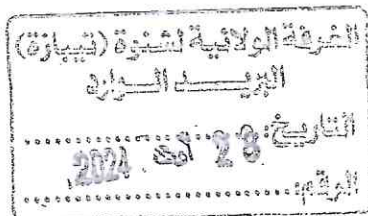 الغرفة الولائية لشنوة (تيبازة)
البريد الوارد
التاريخ: 28 أوت 2024
الرقم: